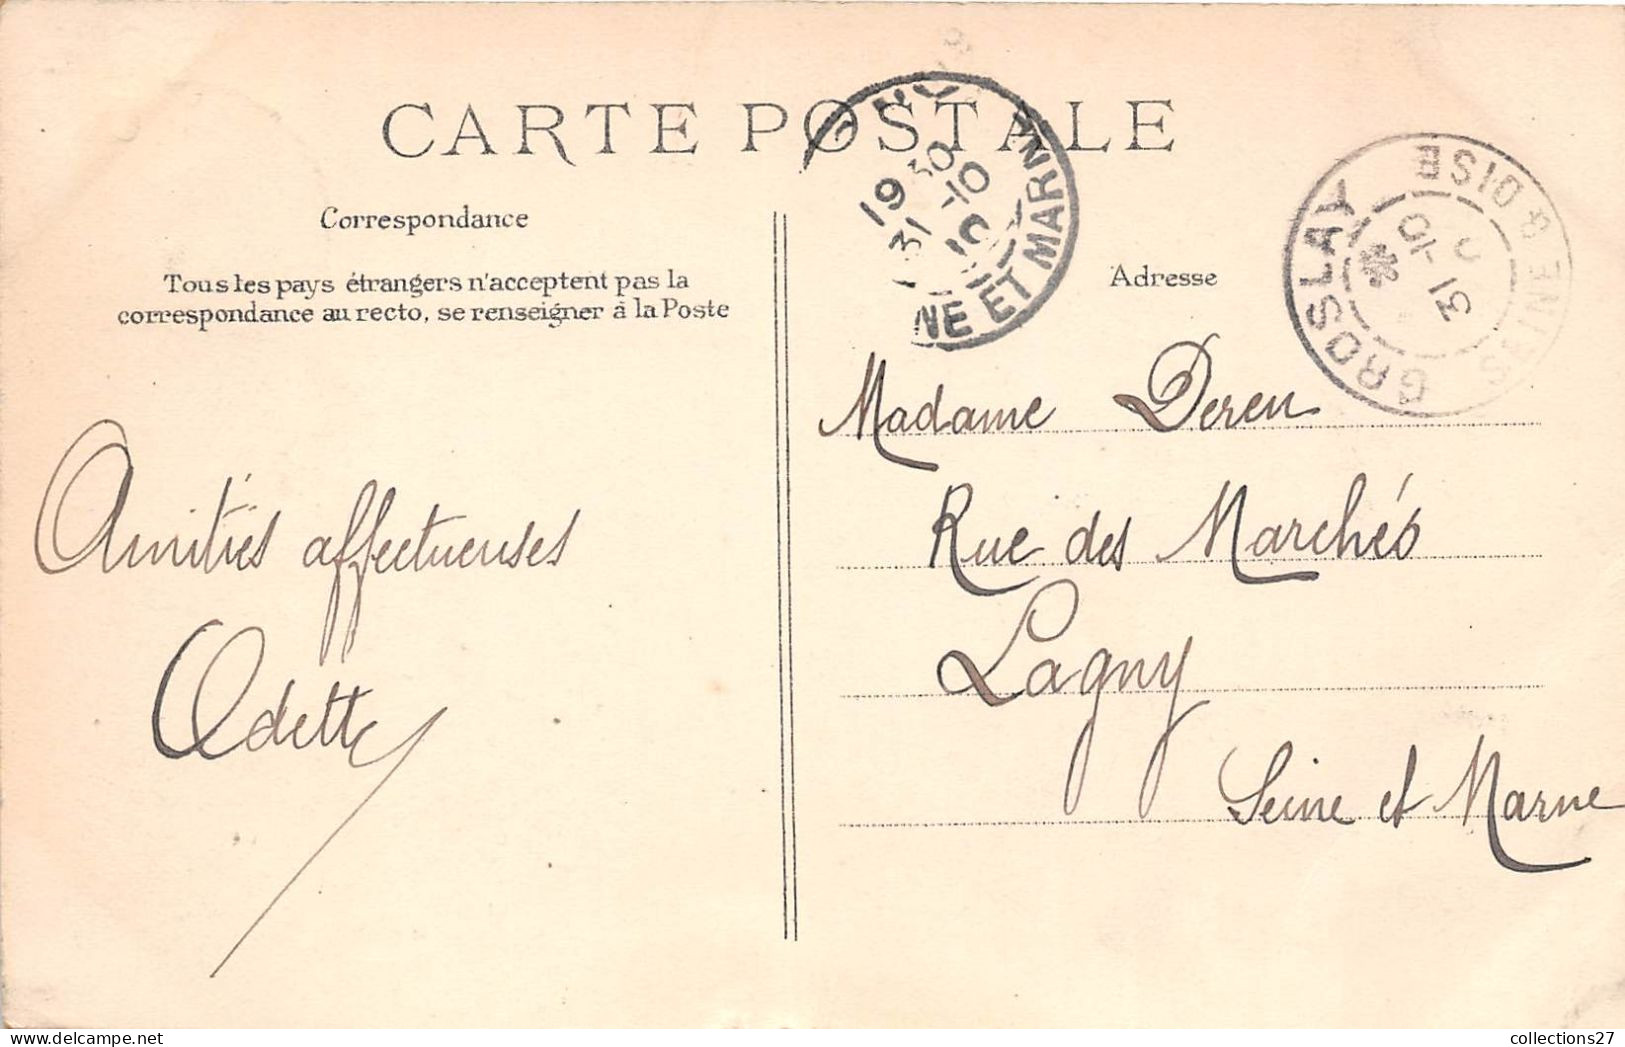 CARTE POSTALE
Correspondance
Tous les pays étrangers n'acceptent pas la
correspondance au recto, se renseigner à la Poste
Adresse
19 30
31 -10
10
NE ET MARNE
GROSLAY
SEINE & OISE
31 -10
Amitiés affectueuses
Odette
Madame Deren
Rue des Marchés
Lagny
Seine et Marne
collections27